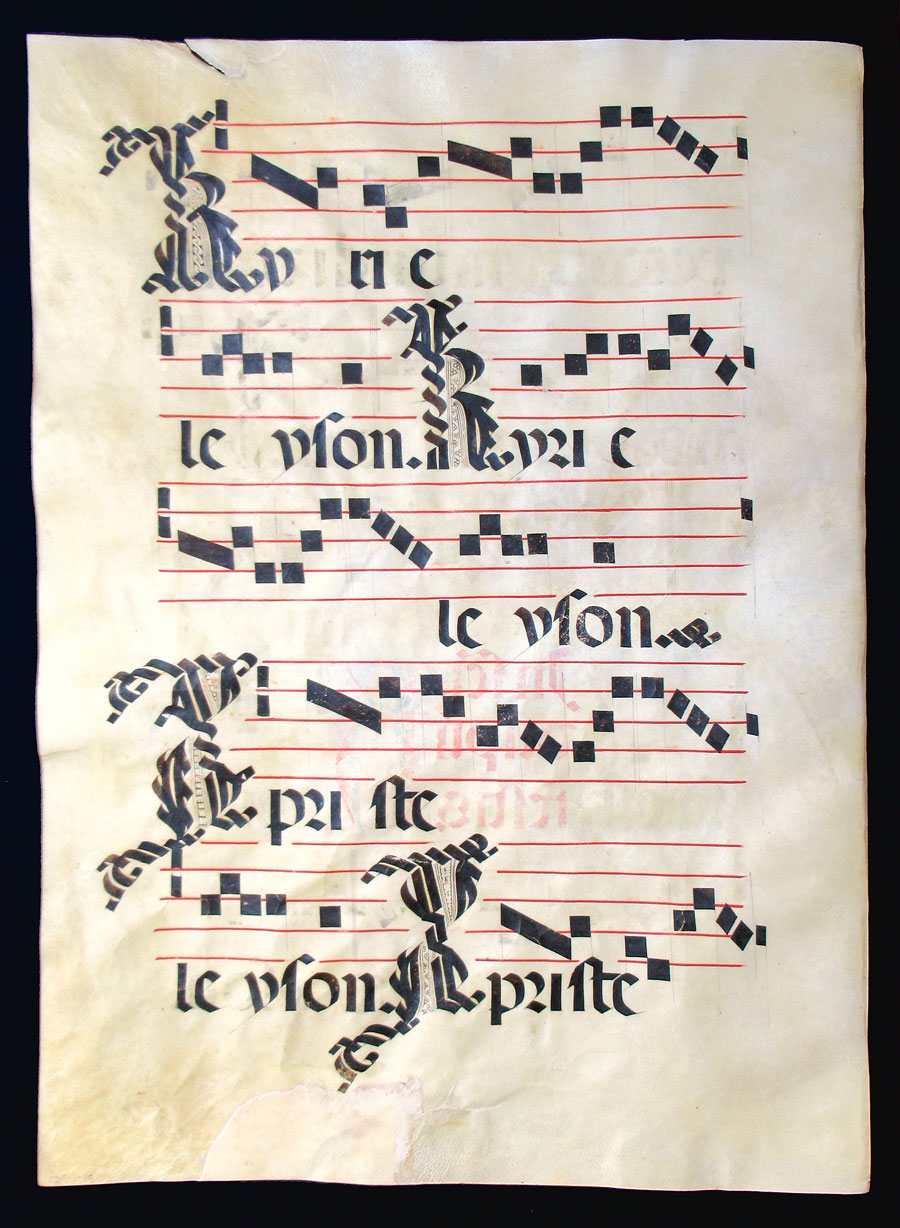 Ky ri e
le yſon. Kyri e
le yſon.
Xpriſte
le yſon. Xpriſte